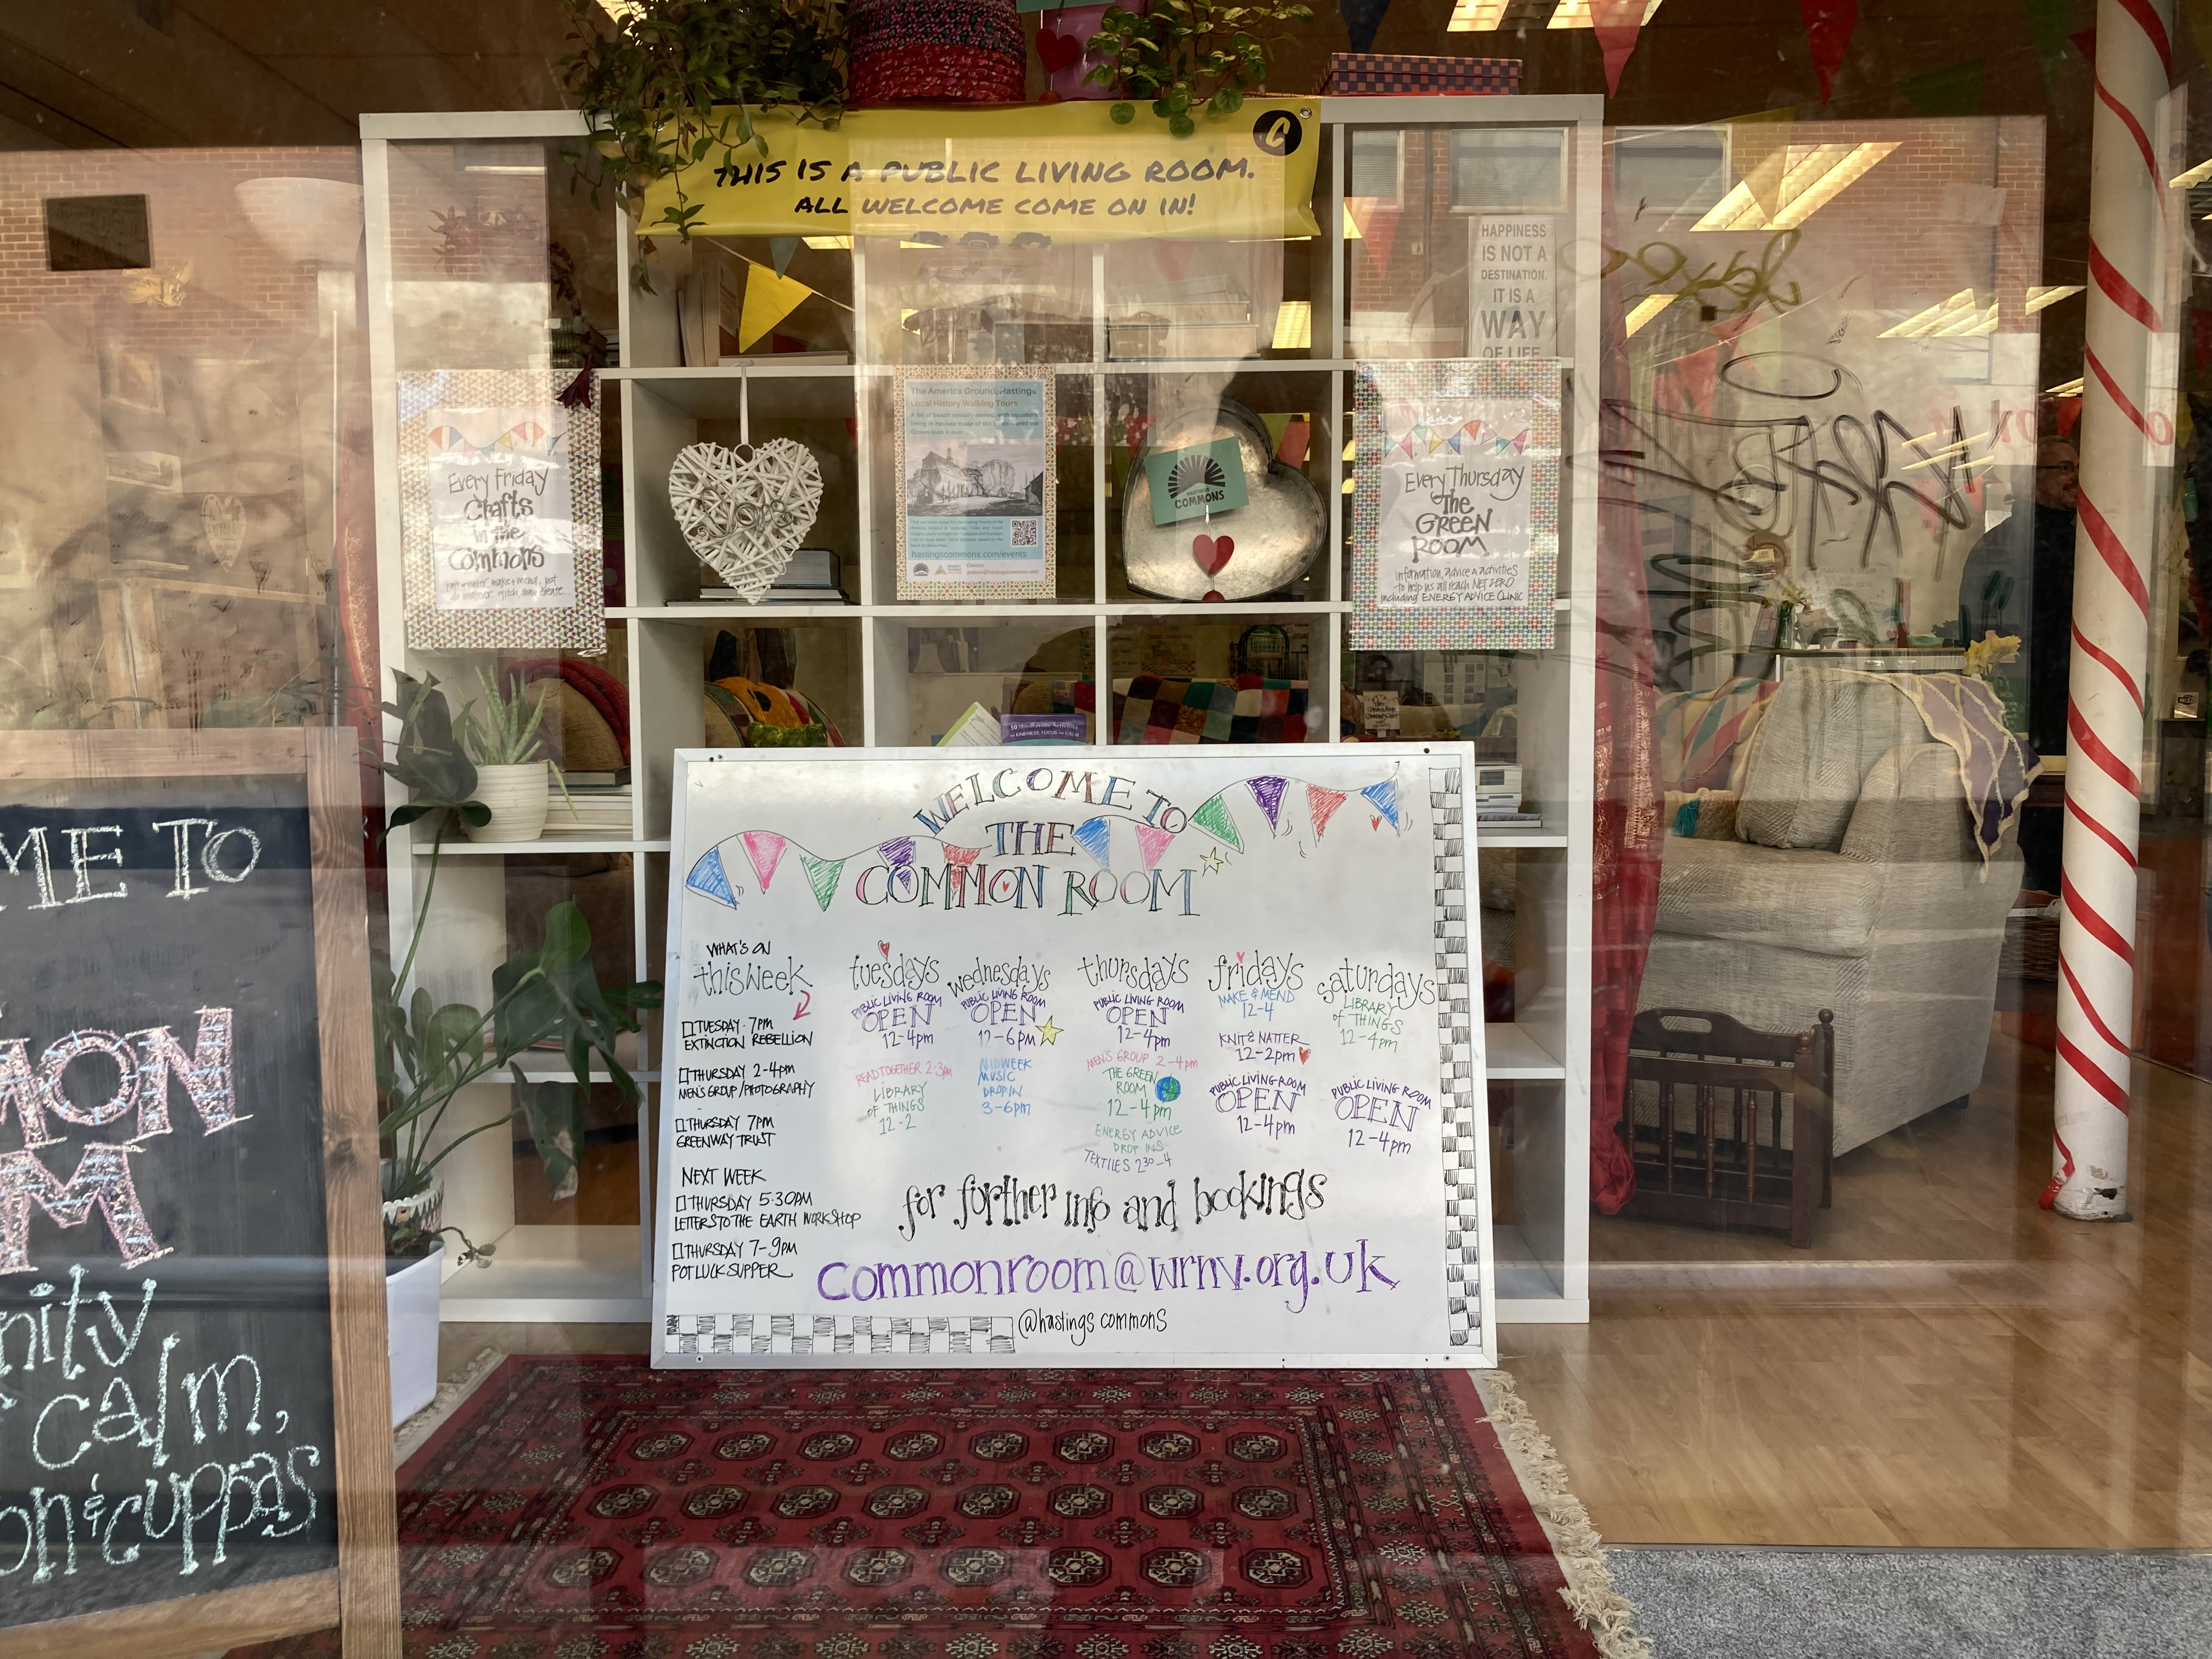 THIS IS A PUBLIC LIVING ROOM.
ALL WELCOME COME ON IN!
HAPPINESS
IS NOT A
DESTINATION.
IT IS A
WAY
OF LIFE
Every Friday
Crafts
in the
Commons
The America Ground, Hastings
Local History Walking Tours
hastingscommons.com/events
HASTINGS
COMMONS
Every Thursday
The
GREEN
ROOM
information, advice & activities
to help us all reach NET ZERO
including ENERGY ADVICE CLINIC
WELCOME TO
THE
COMMON ROOM
WHAT'S ON
this week
TUESDAY 7PM
EXTINCTION REBELLION
THURSDAY 2-4pm
MEN'S GROUP/PHOTOGRAPHY
THURSDAY 7PM
GREENWAY TRUST
NEXT WEEK
THURSDAY 5.30PM
LETTERS TO THE EARTH WORKSHOP
THURSDAY 7-9PM
POT LUCK SUPPER
tuesdays
PUBLIC LIVING ROOM
OPEN
12-4pm
READ TOGETHER 2-3pm
LIBRARY
OF THINGS
12-2
wednesdays
PUBLIC LIVING ROOM
OPEN
12-6pm
MIDWEEK
MUSIC
DROP IN
3-6pm
thursdays
PUBLIC LIVING ROOM
OPEN
12-4pm
MEN'S GROUP 2-4pm
THE GREEN
ROOM
12-4pm
ENERGY ADVICE
DROP INS
TEXTILES 2.30-4
fridays
MAKE & MEND
12-4
KNIT & NATTER
12-2pm
PUBLIC LIVING ROOM
OPEN
12-4pm
saturdays
LIBRARY
OF THINGS
12-4pm
PUBLIC LIVING ROOM
OPEN
12-4pm
for further info and bookings
commonroom@wrnv.org.uk
@hastings commons
ME TO
MON
M
nity
calm,
on & cuppas